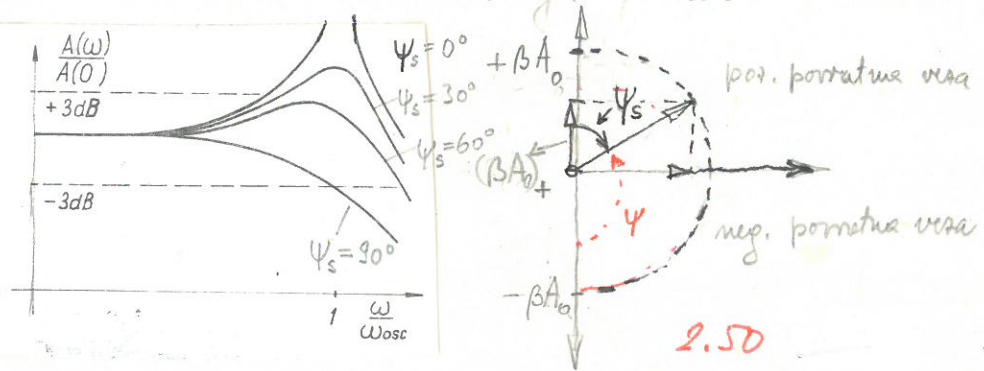 A(ω)
A(0)
+3dB
-3dB
Ψs=0°
Ψs=30°
Ψs=60°
Ψs=90°
1
ω
ωosc
+βA₀
Ψs
(βA₀)+
Ψ
-βA₀
poz. povratna veza
neg. povratna veza
2.50